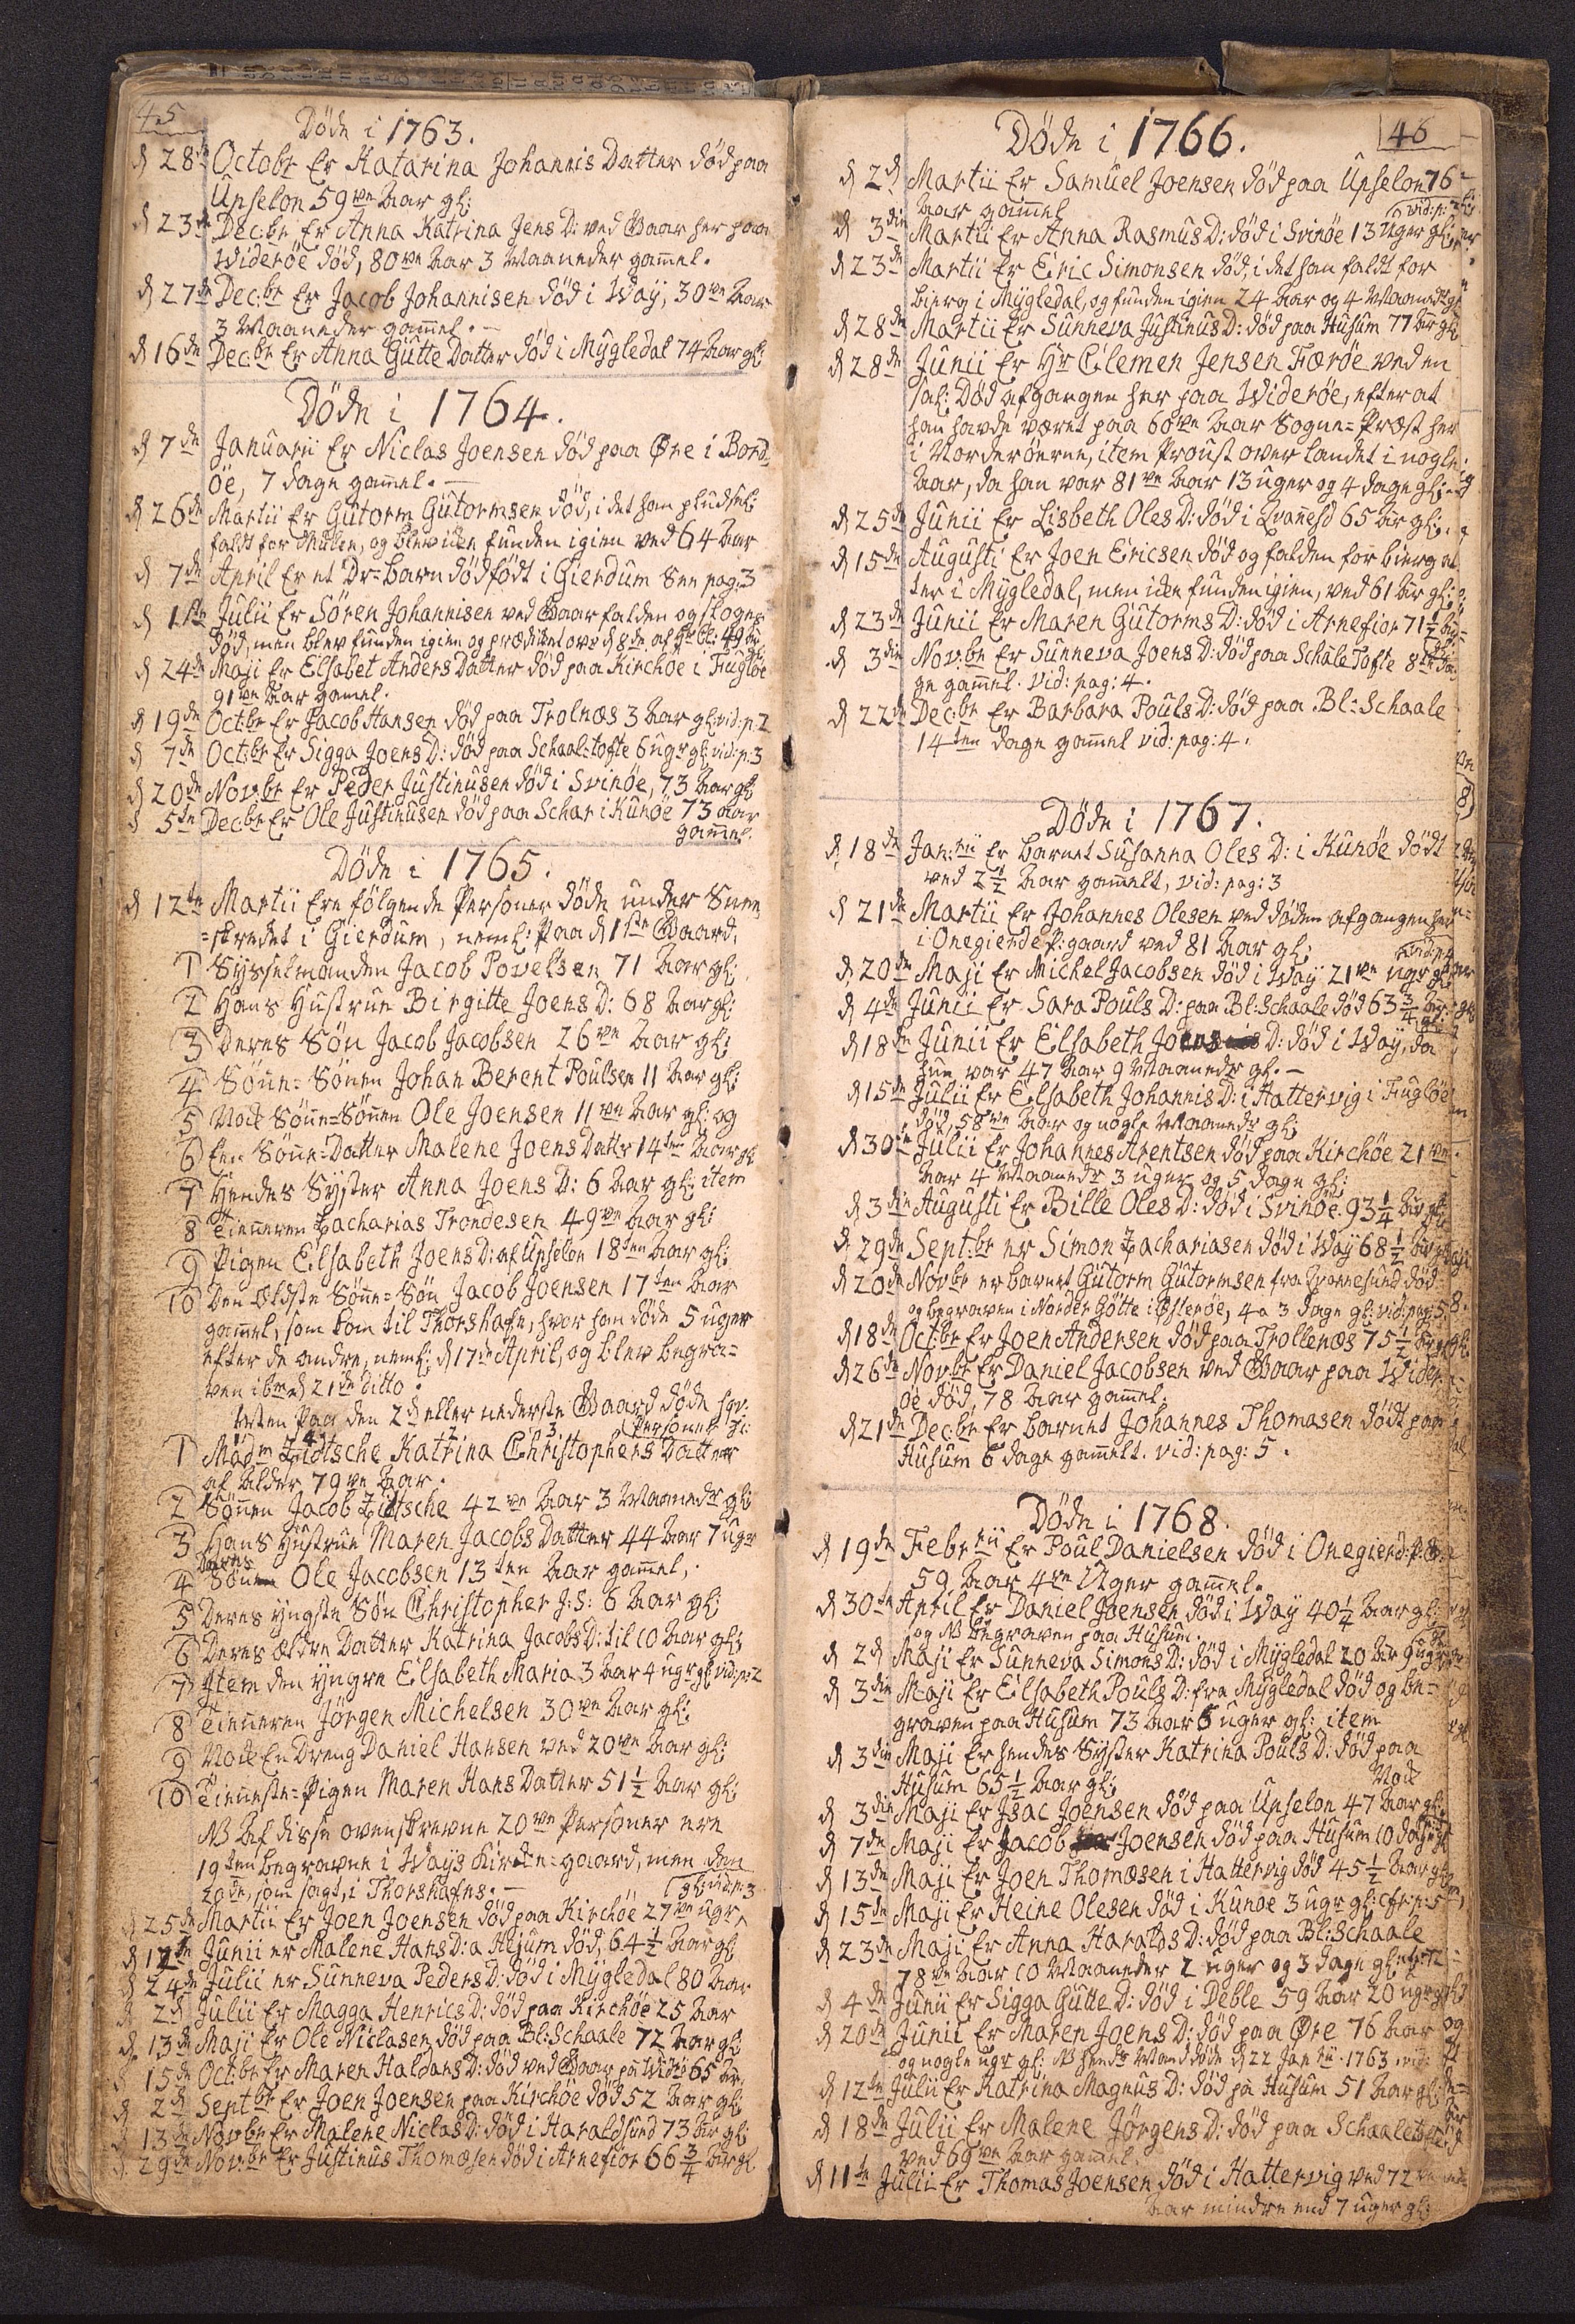 45
Døde i 1763.
d 28de Octobr Er Katarina Johannis Datter død paa
Upselon 59ve Aar gl:
d 23de Dec:br Er Anna Katrina Jens D: ved Gaar her paa
Widerøe død, 80ve Aar 3 Maaneder gammel.
d 27de Dec:br Er Jacob Johannisen død i Way, 30ve Aar
3 Maaneder gammel.
d 16de Dec:br Er Anna Gutte Datter død i Mygledal 74 Aar gl:
Døde i 1764.
d 7de Januarii Er Niclas Joensen død paa Øre i Bord-
øe, 7 dage gammel.
d 26de Martii Er Gutorm Gutormsen død, i det han pludsel:
faldt for Mulen, og blev iken funden igien ved 64 Aar
d 7de April Er et Dr=barn dødfødt i Gierdum See pag: 3
d 1ste Julii Er Søren Johannisen ved Gaar falden og slagen
død, men blev funden igien og prædiket over d 8de
d 24de Maji Er Elsabet Anders Datter død paa Kirchøe i Fugløe
91ve Aar gamel.
d 19de Oct:br Er Jacob Hansen død paa Trolnæs 3 Aar gl: vid: p: 2
d 7de Oct:br Er Sigga Joens D: død paa Schaal=tofte 6 ugr gl: vid: p: 3
d 20de Nov:br Er Peder Justinusen død i Svinøe, 73 Aar gl:
d 5te Dec:br Er Ole Justinusen død paa Schar i Kunøe 73 Aar
gammel.
Døde i 1765.
d 12te Martii Ere følgende Personer døde under Snee
=skredet i Gierdum, neml: Paa d 1ste Gaard.
1 Sysselmanden Jacob Povelsen 71 Aar gl:
2 Hans Hustrue Birgitte Joens D: 68 Aar gl:
3 Deres Søn Jacob Jacobsen 26ve Aar gl:
4 Sønne=Sønen Johan Berent Poulsen 11 Aar gl:
5 Nok Sønne=Sønnen Ole Joensen 11ve Aar gl: og
6 Een Sønne=Datter Malene Joens Dattr 14ten Aar gl:
7 Hendes Syster Anna Joens D: 6 Aar gl: item
8 Tienneren Zacharias Trondesen 49ve Aar gl:
9 Pigen Elsabeth Joens D: af Upselon 18ten Aar gl:
10 Den Ældste Sønne=Søn Jacob Joensen 17ten Aar
gammel, som kom til Thorshafn, hvor han døde 5 uger
efter de andre, neml: d 17de April, og blev begra=
ven ibid d 21de ditto.
Dernæst Paa den 2d eller nederste Gaard døde
Personer
1 Madm Zidtsche Katrina Christophers Datter
af Alder 79ve Aar.
2 Sønnen Jacob Zidtsche 42ve Aar 3 Maanedr gl:
3 Hans Hustrue Maren Jacobs Datter 44 Aar 7 uger
4 Deres Sønn Ole Jacobsen 13ten Aar gammel,
5 Deres yngste Søn Christopher J: S: 6 Aar gl:
6 Deres ældre Datter Katrina Jacobs D: til 10 Aar gl:
7 Item den yngre Elsabeth Maria 3 Aar 4 ugr gl: vid: p: 2
8 Tienneren Jørgen Michelsen 30ve Aar gl:
9 Nok En Dreng Daniel Hansen ved 20ve Aar gl:
10 Tienneste=Pigen Maren Hans Datter 51 1/2 Aar gl:
NB Af disse ovenskrevne 20ve Personer ere
19ten begraven i Ways Kirke=gaard, men den
20de, som sagt, i Thorshafns.
gl: vid: p: 3
d 25de Martii Er Joen Joensen død paa Kirchøe 27ve ugr,
d 12te Junii er Malene Hans D: a Husum død, 64 1/2 Aar gl:
d 24de Julii er Sunneva Peders D: død i Mygledal 80 Aar
d 2d Julii Er Magga Henrics D: død paa Kirchøe 25 Aar
d 13de Maji Er Ole Niclasen død paa Bl: Schaale 72 Aar gl:
d 15de Oct:br Er Maren Haldans D: død ved Gaar pa Widrø 65 Ar.
d 2d Septbr Er Joen Joensen paa Kirchøe død 52 Aar gl:
d 13de Nov:br Er Malene Niclas D: død i Haraldsund 73 Ar gl:
d 29de Nov:br Er Justinus Thomæsen død i Arnefior 66 3/4 Aar gl:
46
Døde i 1766.
d 2d Martii Er Samuel Joensen død paa Upselon 76
Aar gammel
vid: p:
d 3die Martii Er Anna Rasmus D: død i Svinøe 13 Uger gl:
d 23de Martii Er Eric Simonsen død, i det han faldt for
bierg i Mygledal, og funden igien 24 Aar og 4 Maanedr gl:
d 28de Martii Er Sunneva Justinus D: død paa Husum 77 Ar gl:
d 28de Junii Er Hr Clemen Jensen Færøe ved en
sal: Død afgangen her paa Widerøe, efter at
han havde været paa 60ve Aar Sogne=Præst her
i Norderøerne, item Proust over Landet i nogle
Aar, da han var 81ve Aar 13 uger og 4 dage gl:
d 25de Junii Er Lisbeth Oles D: død i Qvannesd 65 Ar gl:
d 15de Augusti Er Joen Ericsen død og falden for bierg et
ter i Mygledal, men iken funden igien, ved 61 Ar gl:
d 23de Junii Er Maren Gutorms D: død i Arnefior 71 1/2 Aar
d 3die Nov:br Er Sunneva Joens D: død paa Schale Tofte 8te da
ge gammel. Vid: pag: 4.
d 22de Dec:br Er Barbara Pouls D: død paa Bl: Schaale
14ten dage gammel vid: pag: 4.
Døde i 1767.
d 18de Jan:rii Er barnet Susanna Oles D: i Kunøe dødt
ved 2 1/2 Aar gammelt, vid: pag: 3
d 21de Martii Er Johannes Olesen ved døden afgangen her
i Onegierde P: gaard ved 81 Aar gl:
vid: p: 4
d 20de Maji Er Michel Jacobsen død i Way 21ve ugr gl:
d 4de Junii Er Sara Pouls D: paa Bl: Schaale død 63 3/4 Ar:
d 18de Junii Er Elsabeth Joens D: død i Way, da
hun var 47 Aar 9 Maanedr gl.
d 15de Julii Er Elsabeth Johannis D: i Hattervig i Fugløe
død, 58ve Aar og nogle Maanedr gl:
d 30te Julii Er Johannes Arentsen død paa Kirchøe 21ve
Aar 4 Maanedr 3 uger og 5 dage gl:
d 3die Augusti Er Bille Oles D: død i Svinøe 93 1/4 Ar gl:
d 29de Sept:br er Simon Zachariasen død i Way 68 1/2 Ar
d 20de Nov:br er barnet Gutorm Gutormsen fra Qvannesund død
og begraven i Norder Gøtte i Østerøe, 4 a 3 dage gl: vid: pag: 5.
d 18de Oct:br Er Joen Andersen død paa Trollenæs 75 1/2 Ar gl:
d 26de Nov:br Er Daniel Jacobsen ved Gaar paa Wider
øe død, 78 Aar gammel,
d 21de Dec:br Er barnet Johannes Thomasen dødt paa
Husum 6 dage gammelt. vid: pag: 5.
Døde i 1768.
d 19de Feb:rii Er Poul Danielsen død i Onegierd: P: G:
59 Aar 4re Uger gammel.
d 30te April Er Daniel Joensen død i Way 40 1/4 Aar gl:
og NB begraven paa Husum.
d 2d Maji Er Sunneva Simons D: død i Mygledal 20 Ar 9 ugr
d 3die Maji Er Elsabeth Pouls D: fra Mygledal død og be=
graven paa Husum 73 Aar 6 uger gl: item
d 3die Maji Er hendes Syster Katrina Pouls D: død paa
Husum 65 1/2 Aar gl:
Nok
d 3die Maji Er Isac Joensen død paa Upselon 47 Aar gl:
d 7de Maji Er Jacob Joensen død paa Husum 10 dage gl:
d 13de Maji Er Joen Thomæsen i Hattervig død 45 1/2 Aar gl:
d 15de Maji Er Heine Olesen død i Kunøe 3 ugr gl: cfr: p: 5
d 23de Maji Er Anna Haralds D: død paa Bl: Schaale
78ve Aar 10 Maaneder 2 uger og 3 dage gl:
d 4de Junii Er Sigga Gutte D: død i Deble 59 Aar 20 ugr gl:
d 20de Junii Er Maren Joens D: død paa Øre 76 Aar
og nogle ugr gl: NB hendes Mand døde d 22 Jan:rii 1763 vid:
d 12te Julii Er Katrina Magnus D: død pa Husum 51 Aar gl:
d 18de Julii Er Malene Jørgens D: død paa Schaaletofte
ved 69ve Aar gammel.
d 11te Julii Er Thomas Joensen død i Hattervig ved 72ve
Aar mindre end 7 uger gl: